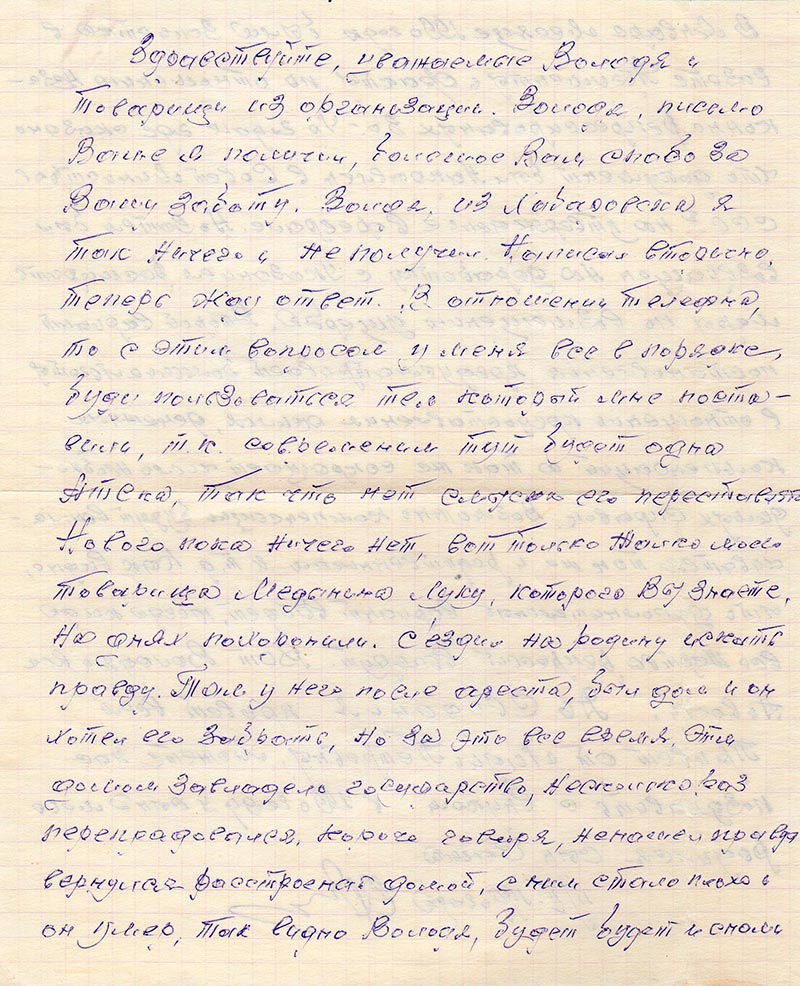 Здравствуйте, уважаемые Володя и
товарищи из организации. Володя, письмо
Ваше я получил, большое Вам спасибо за
Вашу заботу. Володя, из Хабаровска я
так ничего и не получил. Написал вторично,
теперь жду ответ. В отношении телефона,
то с этим вопросом у меня все в порядке,
буду пользоваться тем который мне поста-
вили, т.к. со временем тут будет одна
Атска, так что нет смысла его переставлять
Нового пока ничего нет, вот только жалко моего
товарища Меданина Луку, которого Вы знаете,
на днях похоронили. Сездил на родину искать
правду. Там у него после ареста, был дом и он
хотел его забрать, но за это все время, этим
домом завладело государство, несколько раз
перепродовался, короче говоря, ненашел правды
вернулся расстроеный домой, с ним стало плохо и
он умер, так видно Володя, будет будет и снами